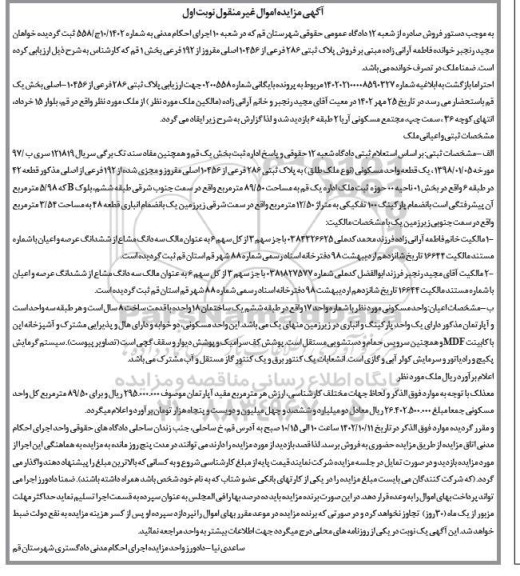 آگهی مزایده اموال غیر منقول نوبت اول
به موجب دستور فروش صادره از شعبه ۱۲ دادگاه عمومی حقوقی شهرستان قم که در اجرای احکام مدنی به شماره ۱۰/۱۴۰۲ج/۵۵۸ ثبت گردیده خواهان
مجید رنجبر خوانده فاطمه آرانی زاده مبنی بر فروش پلاک ثبتی ۲۸۶ فرعی از ۱۰۴۵۶ اصلی مفروز از ۱۹۲ فرعی بخش ۱ قم که کارشناس به شرح ذیل ارزیابی کرده
است. ضمنا ملک در تصرف خوانده می باشد.
احتراما بازگشت به ابلاغیه شماره مربوط به پرونده بایگانی شماره ۰۲۰۰۵۵۸ جهت ارزیابی پلاک ثبتی ۲۸۶ فرعی از ۱۰۴۵۶-اصلی بخش یک
قم باستحضار می رسد در تاریخ ۲۵ مهر ۱۴۰۲ در معیت آقای مجید رنجبر و خانم آرانی زاده (مالکین ملک مورد نظر) از ملک مورد نظر واقع در قم، بلوار ۱۵ خرداد،
انتهای کوچه ۳۶، سمت چپ، مجتمع مسکونی آریا ۲ طبقه ۶ بازدید شد و لذا گزارش به شرح زیر ایفاد می گردد.
مشخصات ثبتی و اعیانی ملک
الف-مشخصات ثبتی: بر اساس استعلام ثبتی دادگاه شعبه ۱۲ حقوقی و پاسخ اداره ثبت بخش یک قم و همچنین مفاد سند تک برگی سریال ۱۲۱۸۱۹ سری ب/۹۷
مورخه ۱۳۹۸/۰۱/۰۵، یک قطعه واحد مسکونی (نوع ملک طلق) به پلاک ثبتی ۲۸۶ فرعی از ۱۰۴۵۶ اصلی مفروز و مجزی شده از ۱۹۲ فرعی از اصلی مذکور قطعه ۴۲
در طبقه ۶ واقع در بخش ۰۱ ناحیه ۰۰ حوزه ثبت ملک اداره یک قم به مساحت ۸۹/۵۰ مترمربع واقع در سمت جنوب شرقی طبقه ششم، بلوک B که ۵/۹۸ مترمربع
آن پیشرفتگی است بانضمام پارکینگ ۱۰۰ تفکیکی به متراژ ۱۲/۵۰ مترمربع واقع در سمت شرقی زیرزمین یک بانضمام انباری قطعه ۴۸ به مساحت ۳/۵۴ مترمربع
واقع در سمت جنوبی زیرزمین یک با مشخصات مالکیت:
۱-مالکیت خانم فاطمه آرانی زاده فرزند محمد کدملی ۰۳۸۴۳۲۶۶۲۵ با جز سهم ۳ از کل سهم ۶ به عنوان مالک سه دانگ مشاع از ششدانگ عرصه و اعیان با شماره
مستند مالکیت ۱۶۶۴۴ تاریخ شانزدهم اردیبهشت ۹۸ دفترخانه اسناد رسمی شماره ۸۸ شهر قم استان قم ثبت گردیده است.
۲-مالکیت آقای مجید رنجبر فرزند ابوالفضل کدملی شماره ۰۳۸۱۸۲۷۵۷۷ با جز سهم ۳ از کل سهم ۶ به عنوان مالک سه دانگ مشاع از ششدانگ عرصه و اعیان
با شماره مستند مالکیت ۱۶۶۴۴ تاریخ شانزدهم اردیبهشت ۹۸ دفترخانه اسناد رسمی شماره ۸۸ شهر قم استان قم ثبت گردیده است.
ب-مشخصات اعیان: واحد مسکونی مورد نظر با شماره واحد ۱۷ واقع در طبقه ششم یک ساختمان ۱۸ واحده با قدمت ساخت ۸ سال است و هر طبقه سه واحد است
و آپارتمان مذکور دارای یک واحد پارکینگ و انباری در زیرزمین منهای یک می باشد. این واحد مسکونی، دو خوابه و دارای هال و پذیرایی مشترک و آشپزخانه این
با کابینت MDF و همچنین سرویس حمام و دستشویی مستقل است. پوشش کف سرامیک و پوشش دیوار و سقف گچی است (تصاویر پیوست). سیستم گرمایش
پکیج و رادیاتور و سرمایش کولر آبی و گازی است. انشعابات یک کنتور برق و یک کنتور گاز مستقل و آب مشترک می باشد.
اعلام برآورد ریال ملک مورد نظر
معذلک با توجه به موارد فوق الذکر و لحاظ جهات مختلف کارشناسی، ارزش هر مترمربع مفید آپارتمان موصوف ۲۹۵.۰۰۰.۰۰۰ ریال و برای ۸۹/۵۰ مترمربع کل واحد
مسکونی جمعا مبلغ ۲۶.۴۰۲.۵۰۰.۰۰۰ ریال معادل دو میلیارد و ششصد و چهل میلیون و دویست و پنجاه هزار تومان برآورد و اعلام میگردد.
و مقرر گردیده موارد فوق الذکر در تاریخ ۱۴۰۲/۱۰/۱۱ ساعت ۱۰ الی ۱۰/۱۵ صبح به آدرس قم، خ ساحلی، جنب زندان ساحلی دادگاه های حقوقی واحد اجرای احکام
مدنی اتاق مزایده از طریق مزایده حضوری به فروش برسد. لذا قصد بازدید از مورد مزایده را دارند می توانند در مدت پنج روز مانده به مزایده به هماهنگی این اجرا از
مورد مزایده بازدید و در صورت تمایل در جلسه مزایده شرکت نمایند. قیمت پایه از مبلغ کارشناسی شروع و به کسانی که بالاترین مبلغ را پیشنهاد دهند واگذار می
گردد. (که شرکت کنندگان می بایست مبلغ مزایده را در یکی از کارتهای بانکی عضو شتاب که به نام خود شخص باشد همراه داشته باشند). ضمنا دادورز اجرا می
تواند پرداخت بهای اموال را به وعده قرار دهد. در این صورت برنده مزایده باید ده درصد بها را فی المجلس به عنوان سپرده به قسمت اجرا تسلیم نماید حداکثر مهلت
مزبور از یک ماه (۳۰ روز) تجاوز نخواهد کرد و در صورتی که برنده مزایده در موعد مقرر بهای اموال را نپردازد سپرده او پس از کسر هزینه مزایده به نفع دولت ضبط
خواهد شد. این آگهی یک نوبت در یکی از روزنامه های محلی درج میگردد جهت اطلاعات بیشتر به واحد مراجعه نمائید.
ساعدی نیا-دادورز واحد مزایده اجرای احکام مدنی دادگستری شهرستان قم